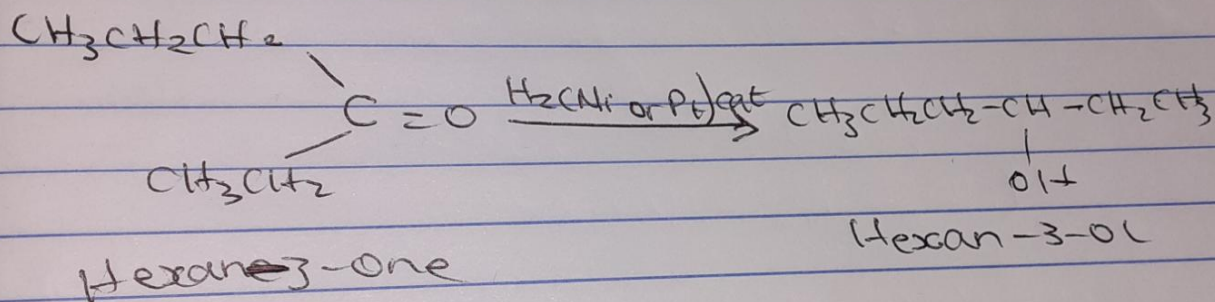 CH3CH2CH2
C=O H2(Ni or Pt)cat CH3CH2CH2-CH-CH2CH3
CH3CH2 OH
Hexan-3-ol
Hexan-3-one